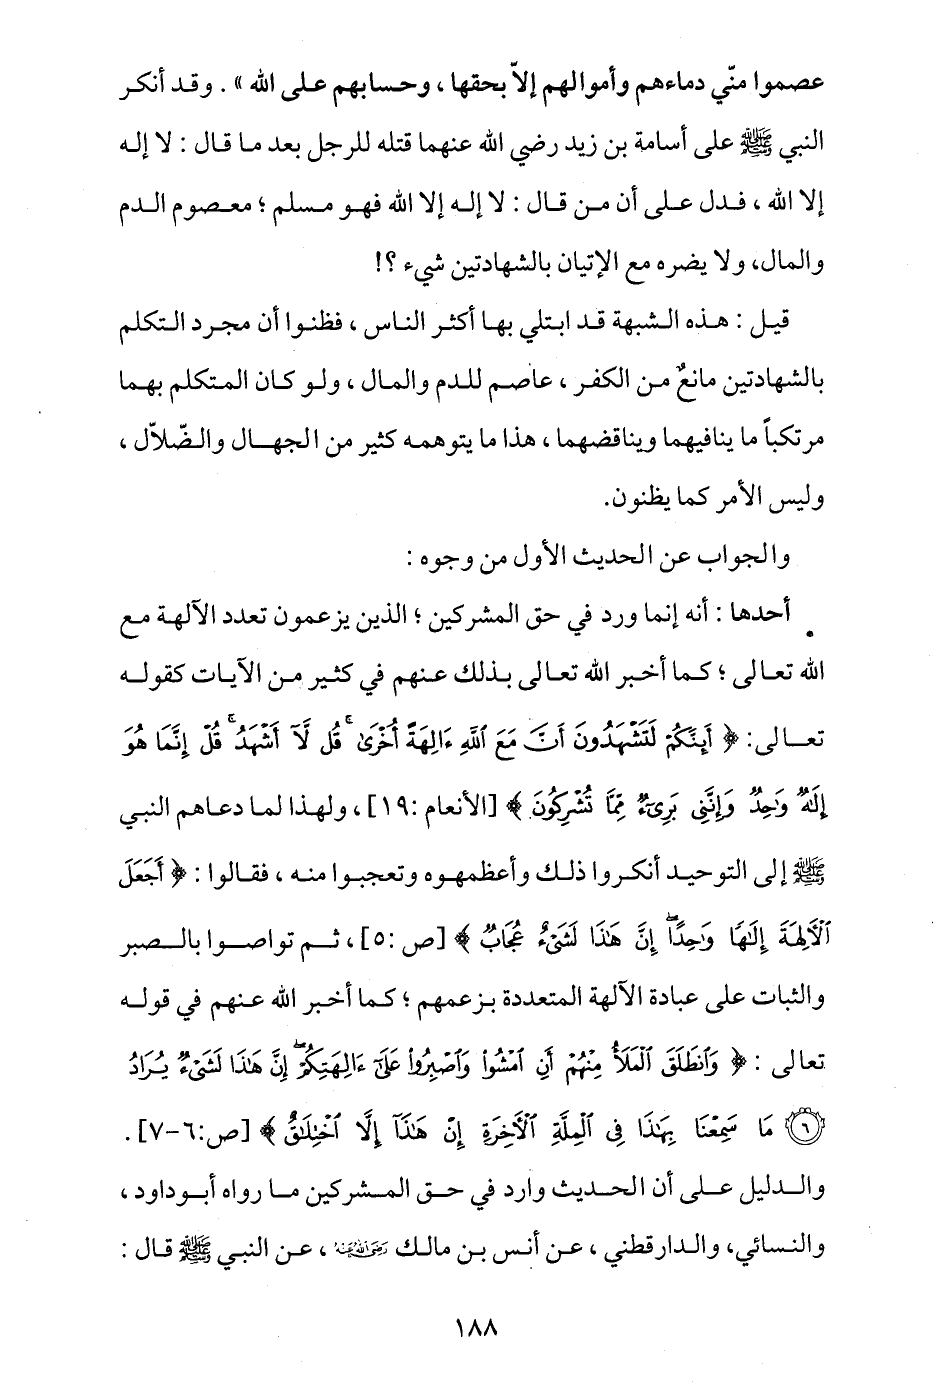 عصموا منّي دماءهم وأموالهم إلاّ بحقها ، وحسابهم على الله » . وقد أنكر
النبي ﷺ على أسامة بن زيد رضي الله عنهما قتله للرجل بعد ما قال : لا إله
إلا الله ، فدل على أن من قال : لا إله إلا الله فهو مسلم ؛ معصوم الدم
والمال، ولا يضره مع الإتيان بالشهادتين شيء ؟!
قيل : هذه الشبهة قد ابتلي بها أكثر الناس ، فظنوا أن مجرد التكلم
بالشهادتين مانعٌ من الكفر ، عاصم للدم والمال ، ولو كان المتكلم بهما
مرتكباً ما ينافيهما ويناقضهما ، هذا ما يتوهمه كثير من الجهال والضّلاّل ،
وليس الأمر كما يظنون.
والجواب عن الحديث الأول من وجوه :
أحدها : أنه إنما ورد في حق المشركين ؛ الذين يزعمون تعدد الآلهة مع
الله تعالى ؛ كما أخبر الله تعالى بذلك عنهم في كثير من الآيات كقوله
تعالى: ﴿ أَئِنَّكُمْ لَتَشْهَدُونَ أَنَّ مَعَ ٱللَّهِ ءَالِهَةً أُخْرَىٰ ۚ قُل لَّآ أَشْهَدُ ۚ قُلْ إِنَّمَا هُوَ
إِلَٰهٌ وَٰحِدٌ وَإِنَّنِى بَرِىٓءٌ مِّمَّا تُشْرِكُونَ ﴾ [الأنعام :١٩] ، ولهذا لما دعاهم النبي
ﷺ إلى التوحيد أنكروا ذلك وأعظمهوه وتعجبوا منه ، فقالوا : ﴿ أَجَعَلَ
ٱلْأَلِهَةَ إِلَٰهًا وَٰحِدًا ۖ إِنَّ هَٰذَا لَشَىْءٌ عُجَابٌ ﴾ [ص :٥] ، ثم تواصوا بالصبر
والثبات على عبادة الآلهة المتعددة بزعمهم ؛ كما أخبر الله عنهم في قوله
تعالى : ﴿ وَٱنطَلَقَ ٱلْمَلَأُ مِنْهُمْ أَنِ ٱمْشُوا۟ وَٱصْبِرُوا۟ عَلَىٰٓ ءَالِهَتِكُمْ ۖ إِنَّ هَٰذَا لَشَىْءٌ يُرَادُ
(٦) مَا سَمِعْنَا بِهَٰذَا فِى ٱلْمِلَّةِ ٱلْأَخِرَةِ إِنْ هَٰذَآ إِلَّا ٱخْتِلَٰقٌ ﴾ [ص:٦-٧] .
والدليل على أن الحديث وارد في حق المشركين ما رواه أبوداود ،
والنسائي، والدارقطني ، عن أنس بن مالك رضي الله عنه ، عن النبي ﷺ قال :
١٨٨